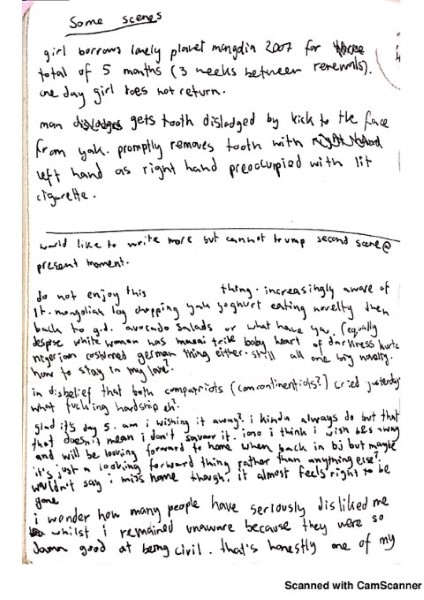 Some scenes
girl borrows lonely planet mongolia 2007 for
total of 5 months (3 weeks between renewals).
one day girl does not return.
man gets tooth dislodged by kick to the face
from yak. promptly removes tooth with
left hand as right hand preoccupied with lit
cigarette.
would like to write more but cannot trump second scene @
present moment.
do not enjoy this thing. increasingly aware of
it. mongolian log chopping yak yoghurt eating novelty then
back to g.d. avocado salads or what have ya. (equally
despise white woman was masai tribe baby heart of darkness
nigerian german thing either. still all one big novelty.
how to stay in my lane?
in disbelief that both compatriots (comcontinentists?) cried yesterday
what fucking hardship eh?
glad it's day 5. am i wishing it away? i kinda always do but that
that doesn't mean i don't savour it. iono i think i wish away
and will be looking forward to home when back in bj but maybe
it's just a looking forward thing rather than anything else?
wouldn't say i miss home though. it almost feels right to be
gone
i wonder how many people have seriously disliked me
whilst i remained unaware because they were so
damn good at being civil. that's honestly one of my
Scanned with CamScanner